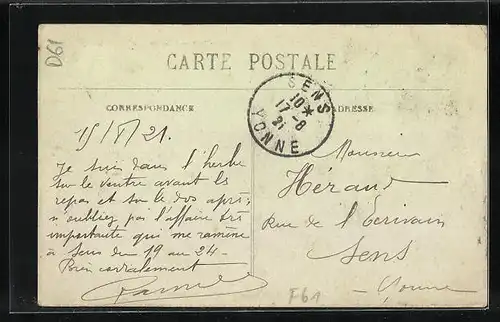 D61
CARTE POSTALE
SENS
10*
17-8
21
YONNE
CORRESPONDANCE
ADRESSE
21.
Je suis dans l'herbe
sur le ventre avant le
repas et sur le dos après
n'oubliez pas l'affaire très
importante qui me ramène
à Sens du 19 au 24-
Bien cordialement
Monsieur
Héraud
Rue de l'Ecrivain
Sens
Yonne
F61